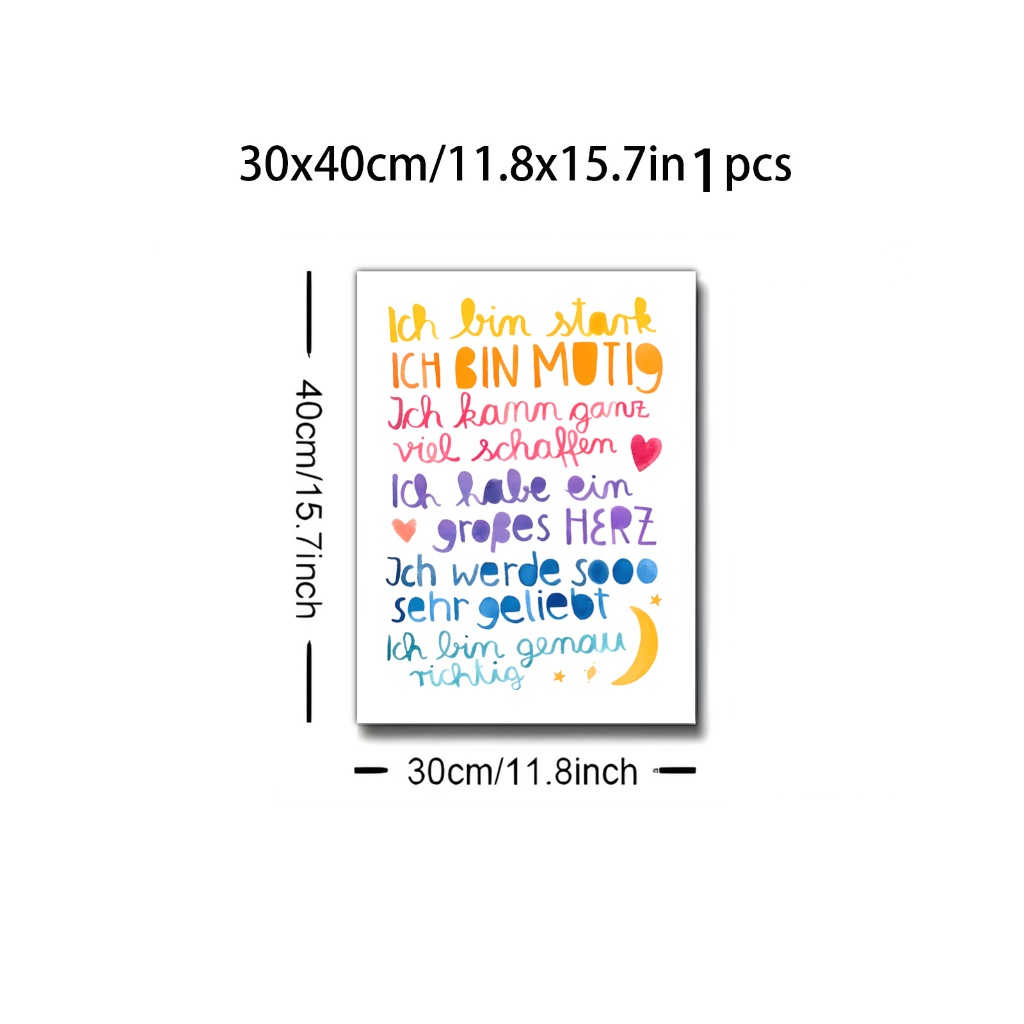 30x40cm/11.8x15.7in1pcs
Ich bin stark
ICH BIN MUTIG
Ich kann ganz
viel schaffen
Ich habe ein
großes HERZ
Ich werde sooo
sehr geliebt
Ich bin genau
richtig
40cm/15.7inch
30cm/11.8inch